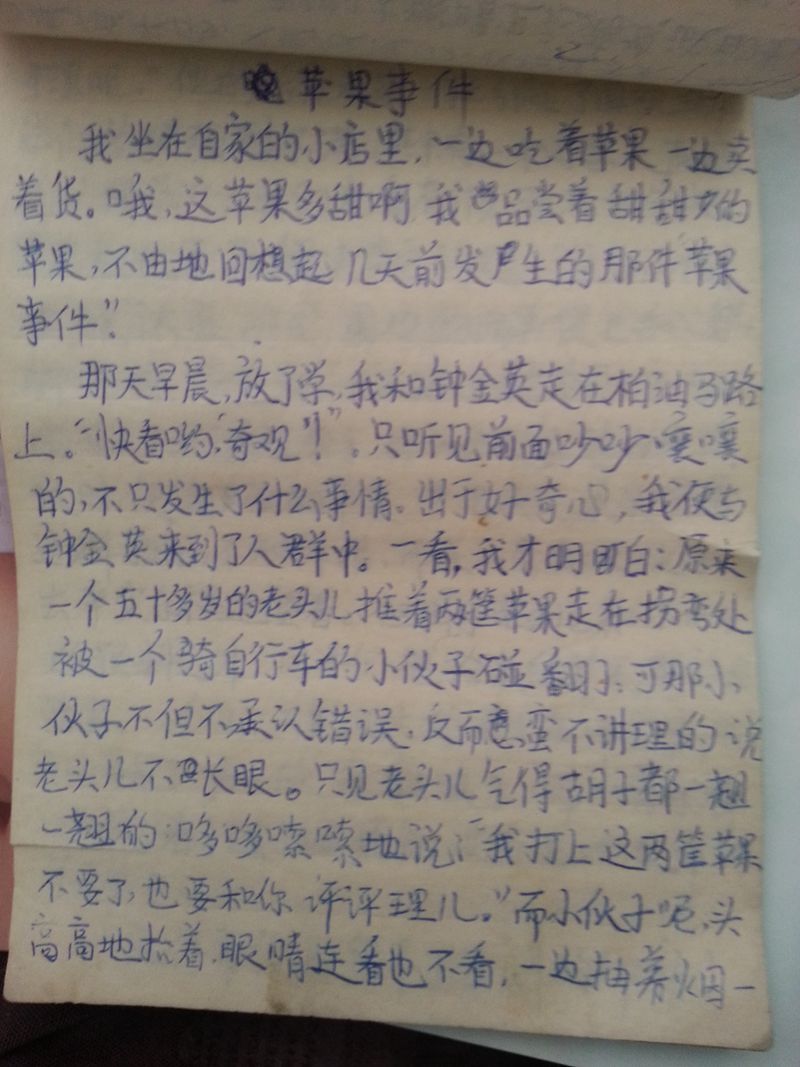 苹果事件
我坐在自家的小店里,一边吃着苹果一边卖
着货。哦,这苹果多甜啊 我品尝着甜甜的
苹果,不由地回想起几天前发生的那件苹果
事件”.
那天早晨,放了学,我和钟金英走在柏油马路
上。“快看哟,奇观”!”。只听见前面吵吵嚷嚷
的,不只发生了什么事情。出于好奇心,我便与
钟金英来到了人群中。一看,我才明白:原来
一个五十多岁的老头儿推着两筐苹果走在拐弯处
被一个骑自行车的小伙子碰翻了;可那小
伙子不但不承认错误,反而蛮不讲理的说
老头儿不长眼。只见老头儿气得胡子都一翘
一翘的:哆哆嗦嗦地说:“我打上这两筐苹果
不要了,也要和你评评理儿。”而小伙子呢,头
高高地抬着,眼睛连看也不看,一边抽着烟一